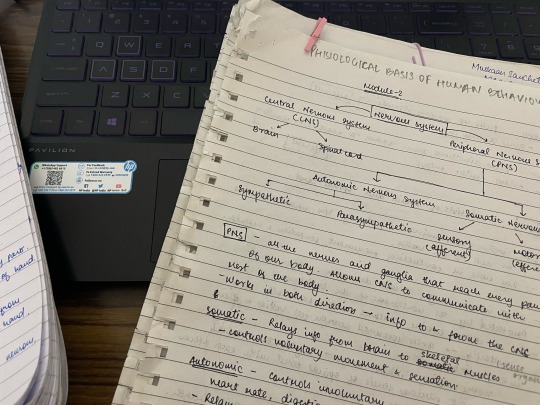 Muskaan
PHYSIOLOGICAL BASIS OF HUMAN BEHAVIOU
Module-2
Nervous system
Central Nervous system
(CNS)
Peripheral Nervous S
(PNS)
Brain
Spinal cord
Autonomic Nervous System
Somatic Nervous
Sympathetic
Parasympathetic
Sensory
(afferent)
Motor
(effere
PNS - all the nerves and ganglia that reach every par
of our body. Allows CNS to communicate with
rest of the body.
- Works in both direction → info to & from the CNS
Somatic - Relays info from brain to skeletal muscles
- controls voluntary movement & sensation.
Autonomic - controls involuntary
heart rate, digestio
- Relay
PAVILION
WhatsApp Support
Q W E R T Y
A S D F G H
Z X C V
part
of hand
from
hand.
neuron